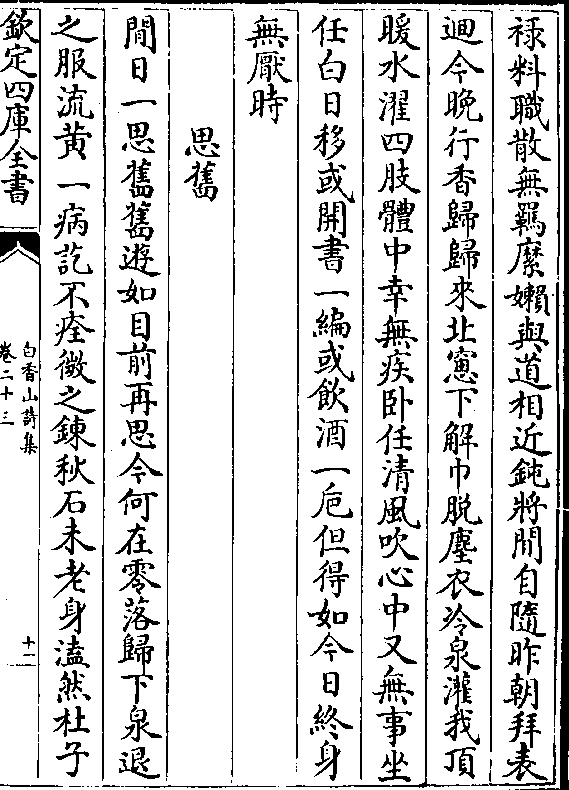 祿料職散無羈縻嬾與道相近鈍將閒自隨昨朝拜表
廻今晚行香歸歸來北窻下解巾脱塵衣冷泉灌我頂
暖水濯四肢體中幸無疾卧任清風吹心中又無事坐
任白日移或開書一編或飲酒一巵但得如今日終身
無厭時
思舊
閒日一思舊舊遊如目前再思今何在零落歸下泉退
之服流黄一病訖不痊微之鍊秋石未老身溘然杜子
欽定四庫全書
白香山詩集
卷二十三
十二